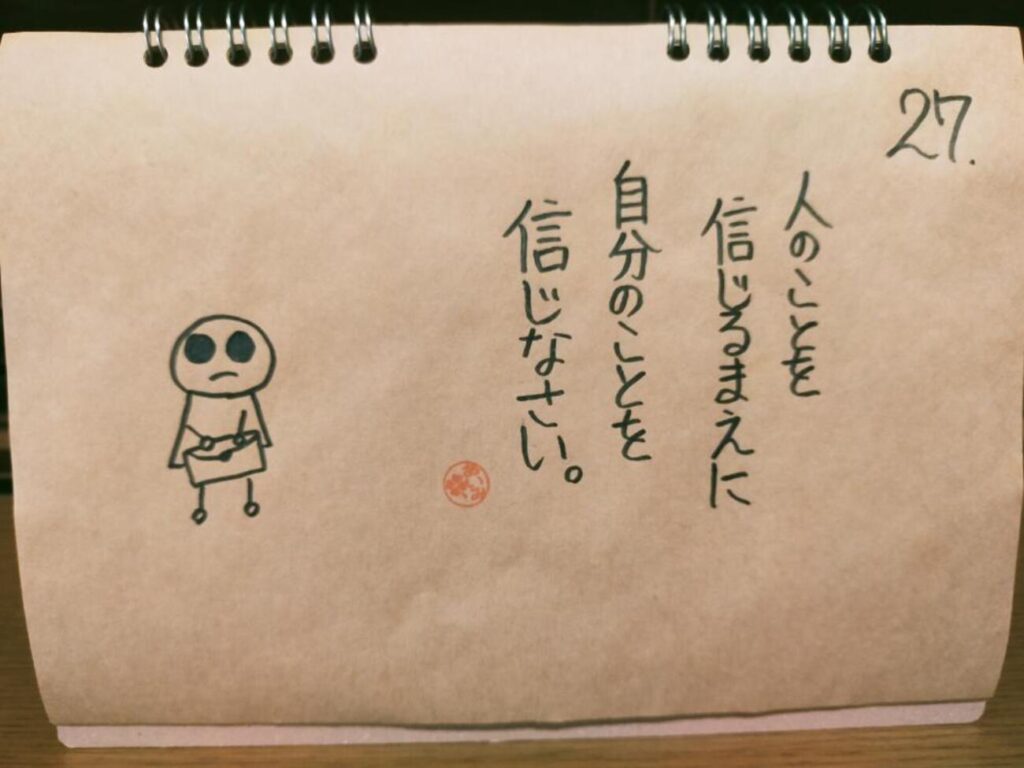 27.
人のことを
信じるまえに
自分のことを
信じなさい。